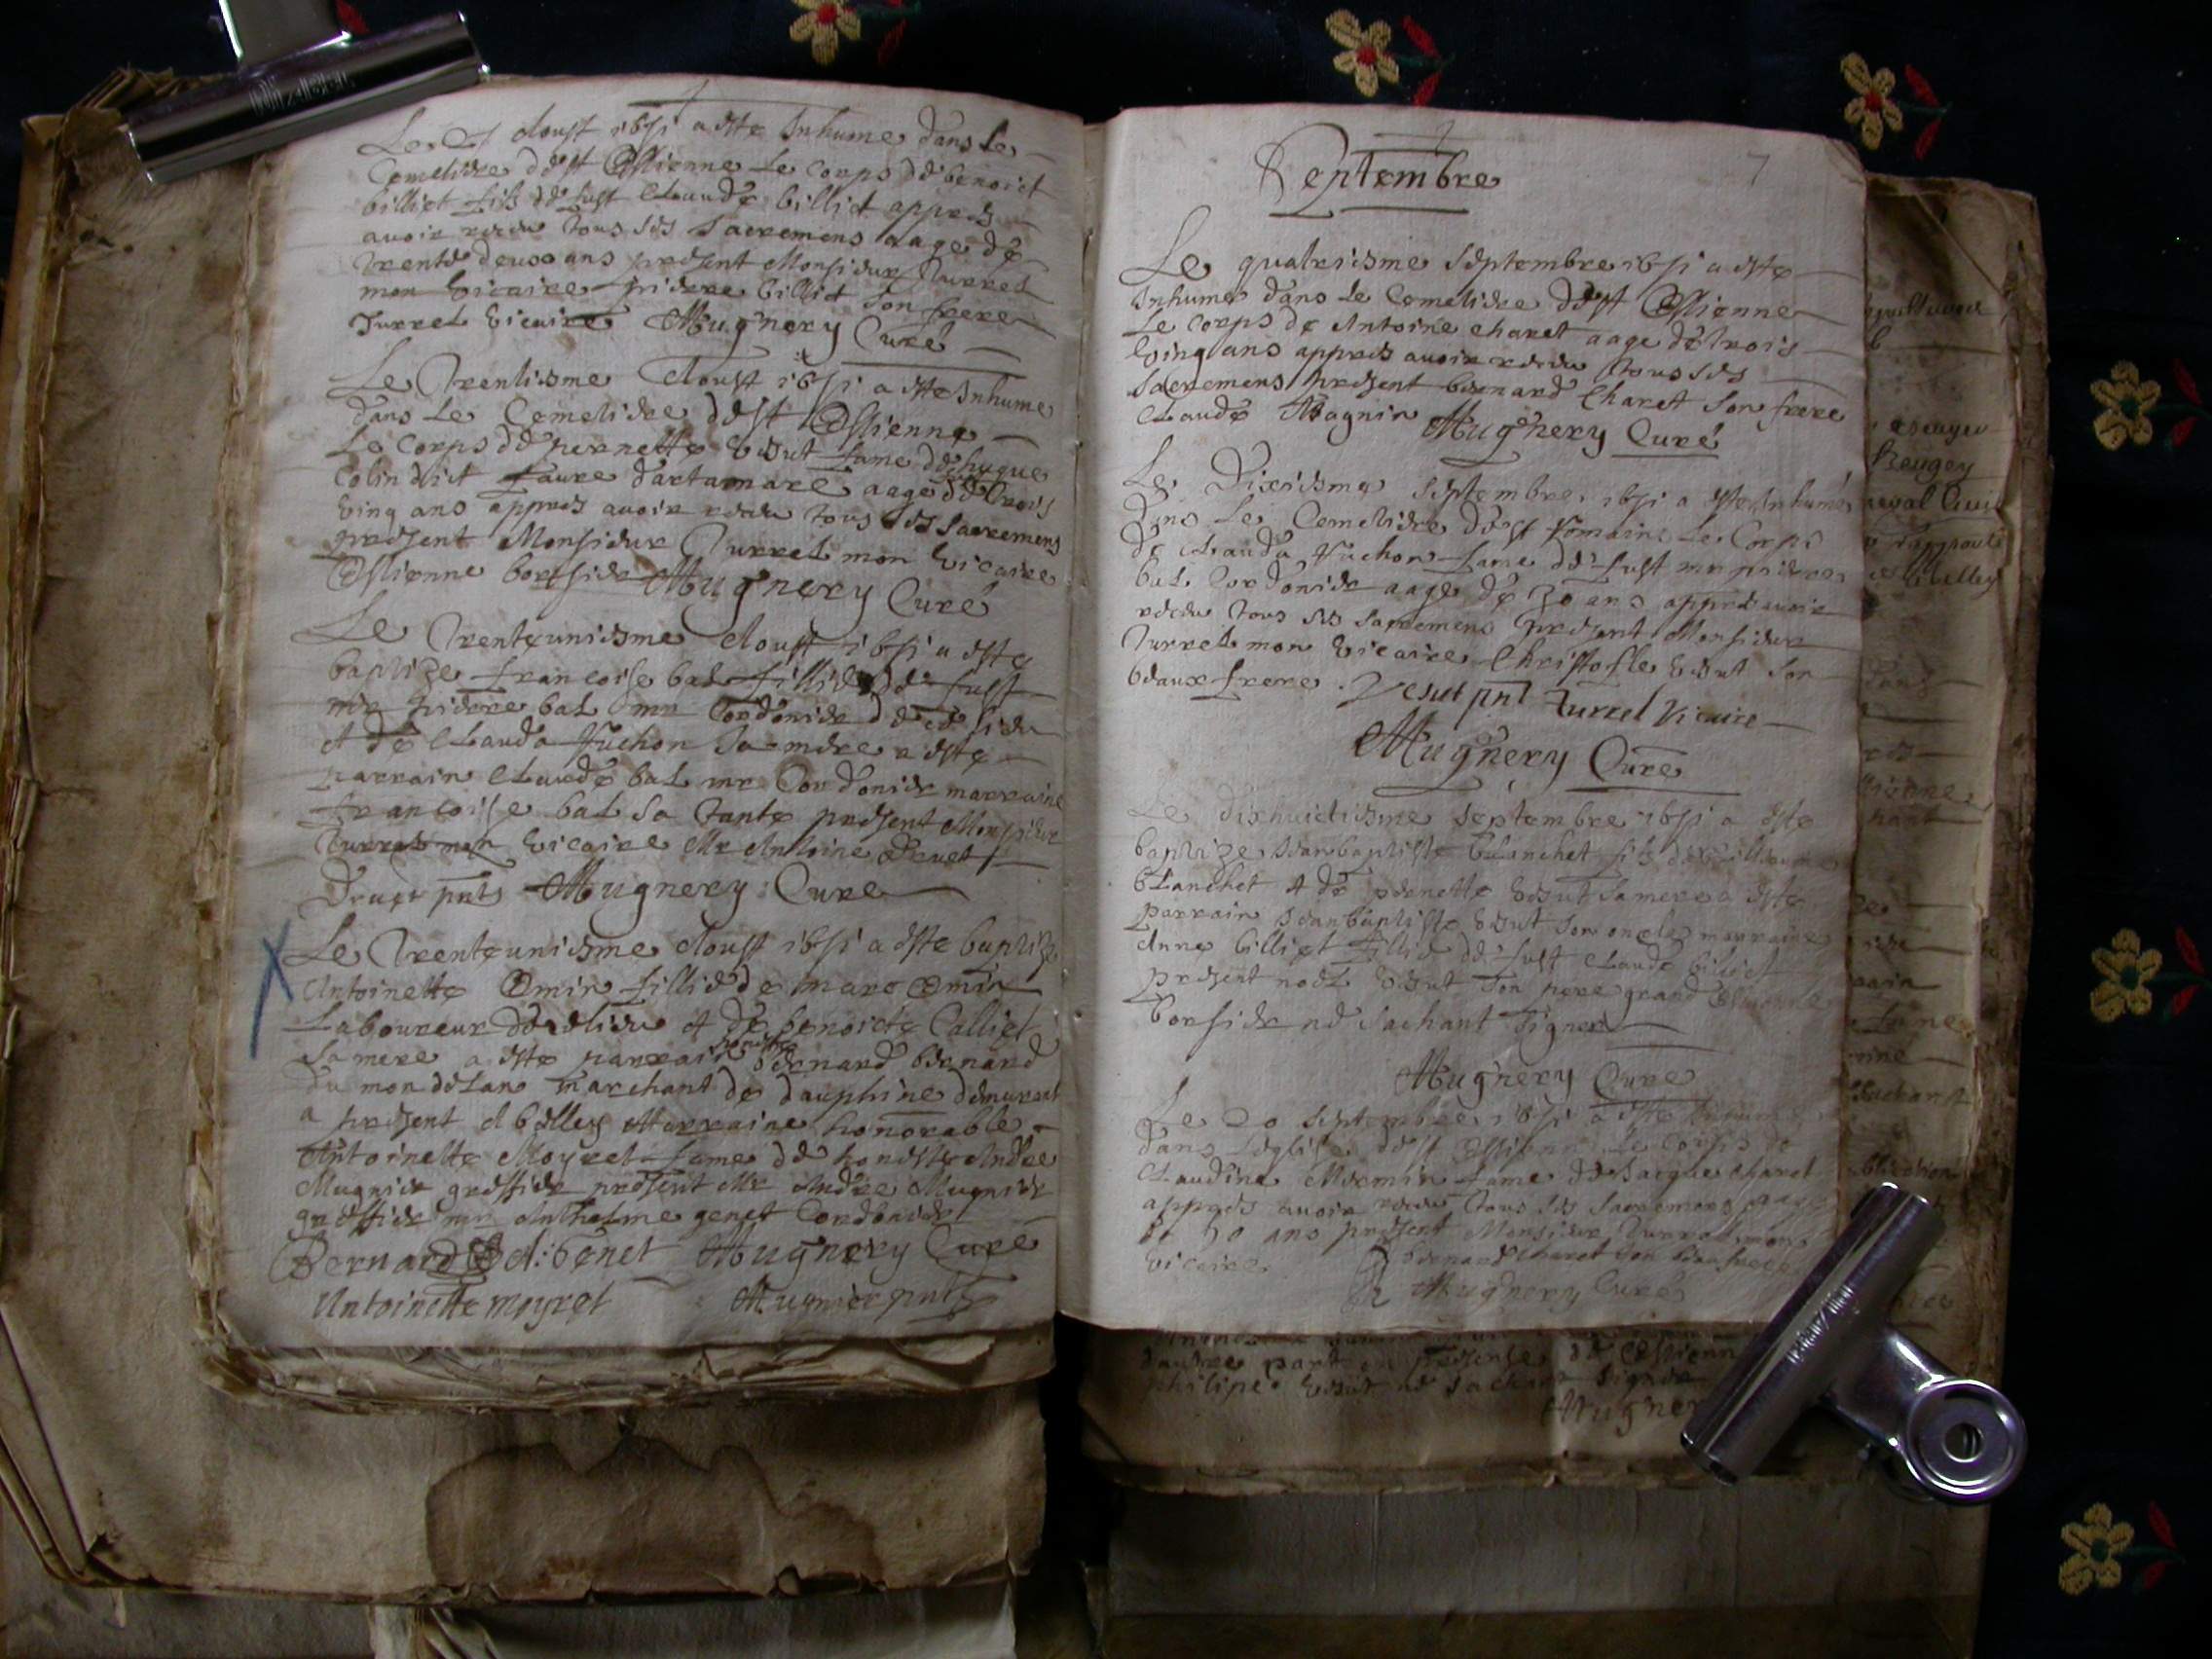 Le 27 Aoust 1671 a este Inhume dans le
Cemeliere de st Estienne Le corps de benoict
billiet fils de fust Claude billiet appres
avoir receu tous ses Sacremens aage de
trente deux ans present Monsieur Turrel
mon vicaire pierre billiet son frere
Turrel vicaire Mugnery Curé
Le trentiesme Aoust 1671 a este Inhume
dans Le Cemeliere de st Estienne
Le corps de pernette Vesut fame de hugue
Colin dict faure dartamare aage de trois
ving ans appres avoir receu tous ses Sacremens
present Monsieur Turrel mon vicaire
Estienne borssier Mugnery Curé
Le trenteuniesme Aoust 1671 a este
baptize francoise bal fillie de fust
mr pierre bal mr Cordonier de ce lieu
et de Clauda fuchon sa mere a este
parrain Claude bal mr Cordonier marraine
francoise bal sa tante present Monsieur
Turrel mon vicaire Mr Antoine Druet
Druet pnt Mugnery Cure
Le trenteuniesme Aoust 1671 a este baptize
Antoinette Emin fillie de marc Emin
Laboureur de ce lieu et de benoicte Calliet
sa mere a este parrain honeste bernard bernard
du mon de Lans marchant de dauphine demurant
a present a belley Marraine honorable
Antoinette Moyret fame de honeste Andre
Mugnier greffier present Mr Andre Mugnier
greffier mr Anthelme genet Cordonier
Bernard A: Genet Mugnery Cure
Antoinette moyret Mugnier pnt
Septembre
7
Le quatriesme septembre 1671 a este
Inhume dans Le Cemeliere de st Estienne
Le corps de Antoine charet aage de trois
ving ans appres avoir receu tous ses
Sacremens present bernard Charet son frere
Claude Magnin Mugnery Curé
Le Dixiesme septembre 1671 a este Inhume
dans Le Cemeliere de st romain Le Corps
de Clauda fuchon fame de fust mr pierre
bal Cordonier aage de 30 ans appres avoir
receu tous ses sacremens present Monsieur
Turrel mon vicaire Christofle Vesut son
beaux frere Vesut pnt Turrel Vicaire
Mugnery Curé
Le dixhuictiesme septembre 1671 a este
baptize Jean baptiste blanchet fils de Guillaume
blanchet et de pernette Vesut sa mere a este
parrain Jean baptiste Vesut son oncle marraine
Anne billiet fillie de fust Claude billiet
present noel Vesut son pere grand
borsier ne sachant signer
Mugnery Cure
Le 20 septembre 1671 a este Inhume
dans Leglise de st Estienne Le Corps de
Claudine Mermin fame de Jacque Charet
appres avoir receu tous ses sacremens aage
de 50 ans present Monsieur Turrel mon
vicaire bernard Charet son beau frere
Mugnery Curé
dautre part en presense de Estienne
philipe Vesut ne sachant signer
Mugner